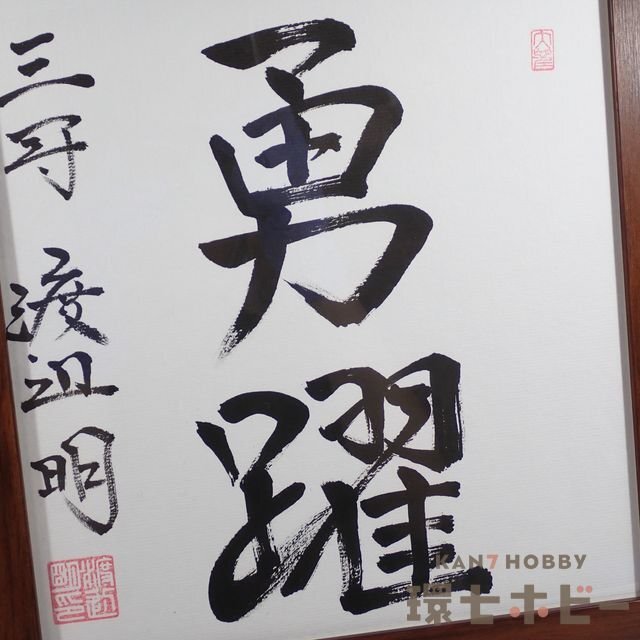 勇躍
三冠 渡辺明
KAN7 HOBBY
環七ホビー